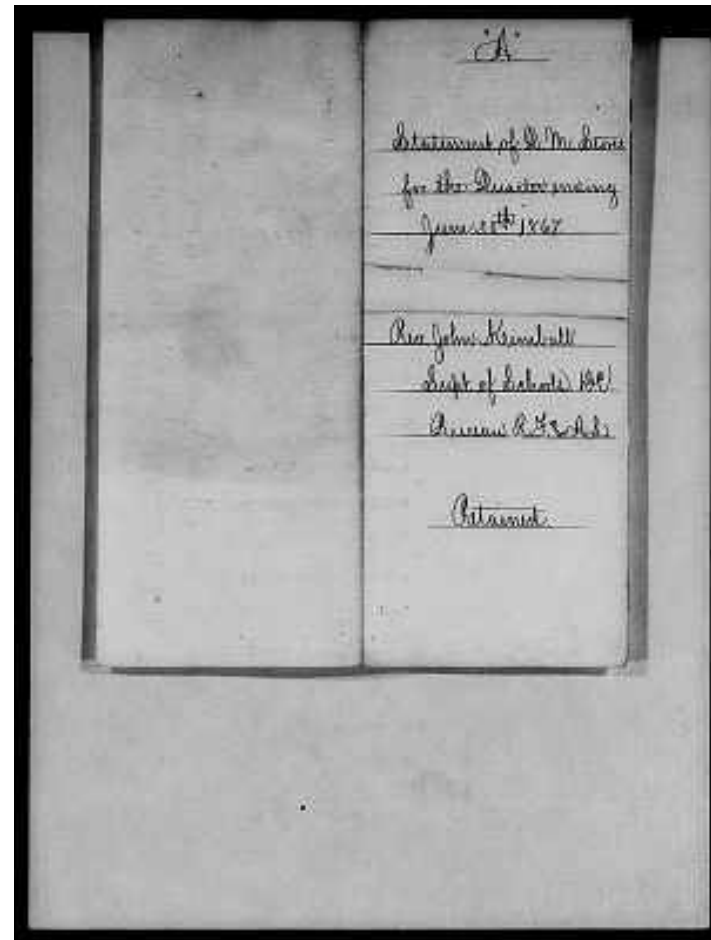 "A"
Statement of Q. M. Stores
for the Quarter ending
June 30th 1867
Rev John Kimball
Supt of Schools D.C.
Bureau R. F. & A. L.
Retained